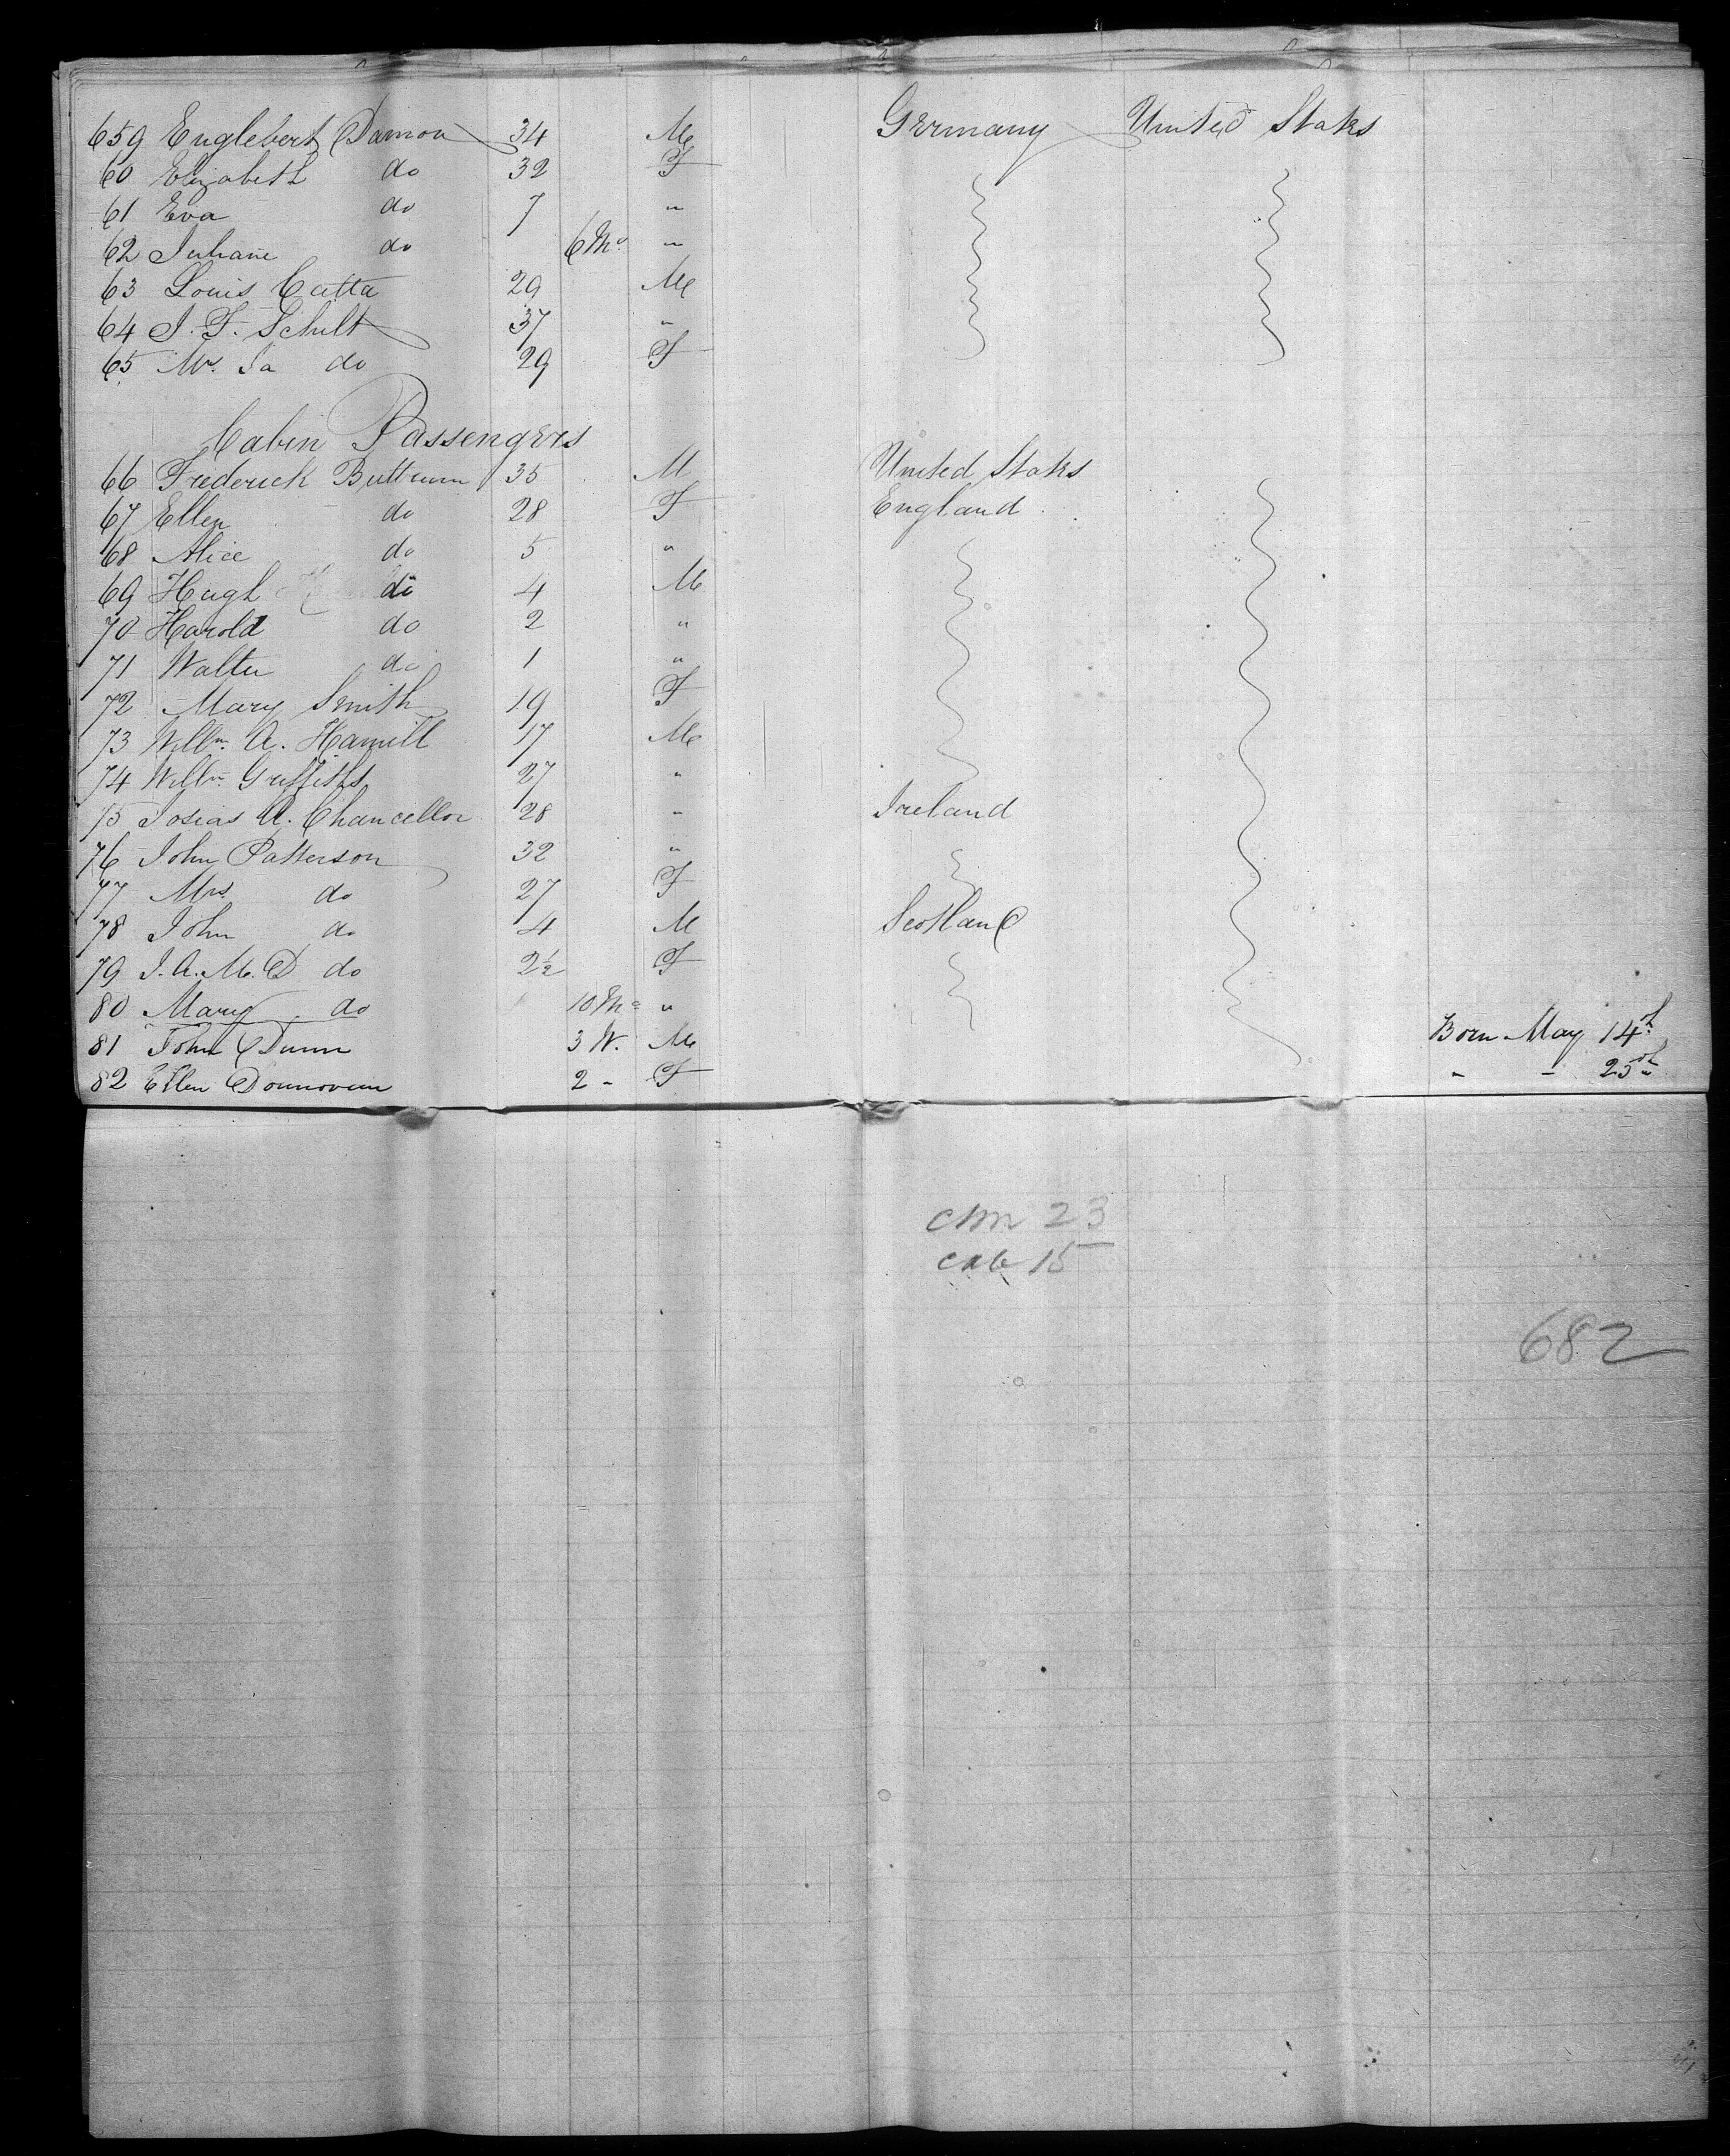 659 Englebert Damon 34 M Germany United States
60 Elizabeth do 32 F
61 Eva do 7 "
62 Juliane do 6 Mo "
63 Louis Catta 29 M
64 J. F. Schult 37 "
65 Mrs. Ja do 29 F
Cabin Passengers
66 Frederick Buttrum 35 M United States
67 Ellen do 28 F England
68 Alice do 5 "
69 Hugh do 4 M
70 Harold do 2 "
71 Walter do 1 "
72 Mary Smith 19 F
73 Willm. A. Hamill 17 M
74 Willm Griffiths 27 "
75 Josias A. Chancellor 28 " Ireland
76 John Patterson 32 "
77 Mrs do 27 F
78 John do 4 M Scotland
79 J. A. M. D do 2½ F
80 Mary do 10 Mo "
81 John Dunn 3 W. M Born May 14th
82 Ellen Donnovan 2 " F " " 25th
23
cab 15
682